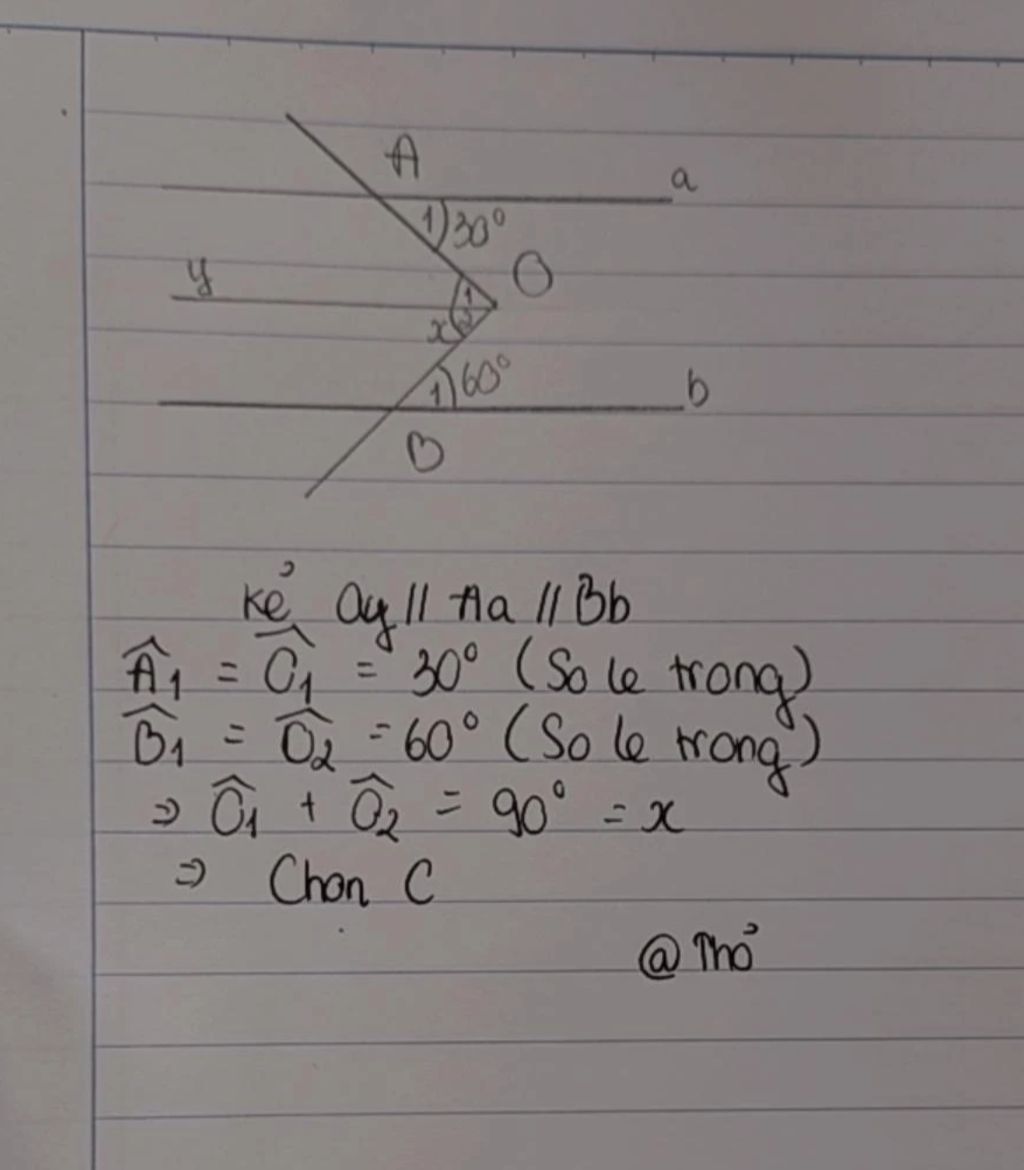 A
a
1) 30°
y
O
1
x 2
1) 60°
b
B
Kẻ Oy // Aa // Bb
Â₁ = Ô₁ = 30° (So le trong)
B̂₁ = Ô₂ = 60° (So le trong)
⇒ Ô₁ + Ô₂ = 90° = x
⇒ Chọn C
@Thỏ